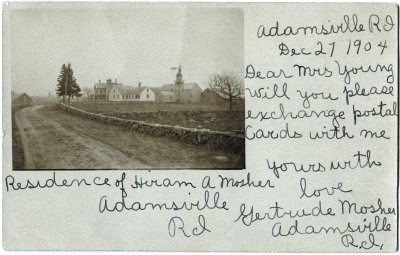 Adamsville RI
Dec 27 1904
Dear Mrs Young
Will you please
exchange postal
Cards with me
yours with
love
Gertrude Mosher
Adamsville
R.I.
Residence of Hiram A Mosher
Adamsville
R I